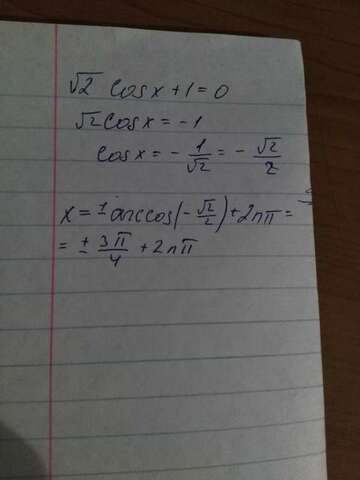 √2 cosx+1=0
√2 cosx=-1
cosx=-1/√2=-√2/2
x=±arccos(-√2/2)+2nπ=
=±3π/4+2nπ